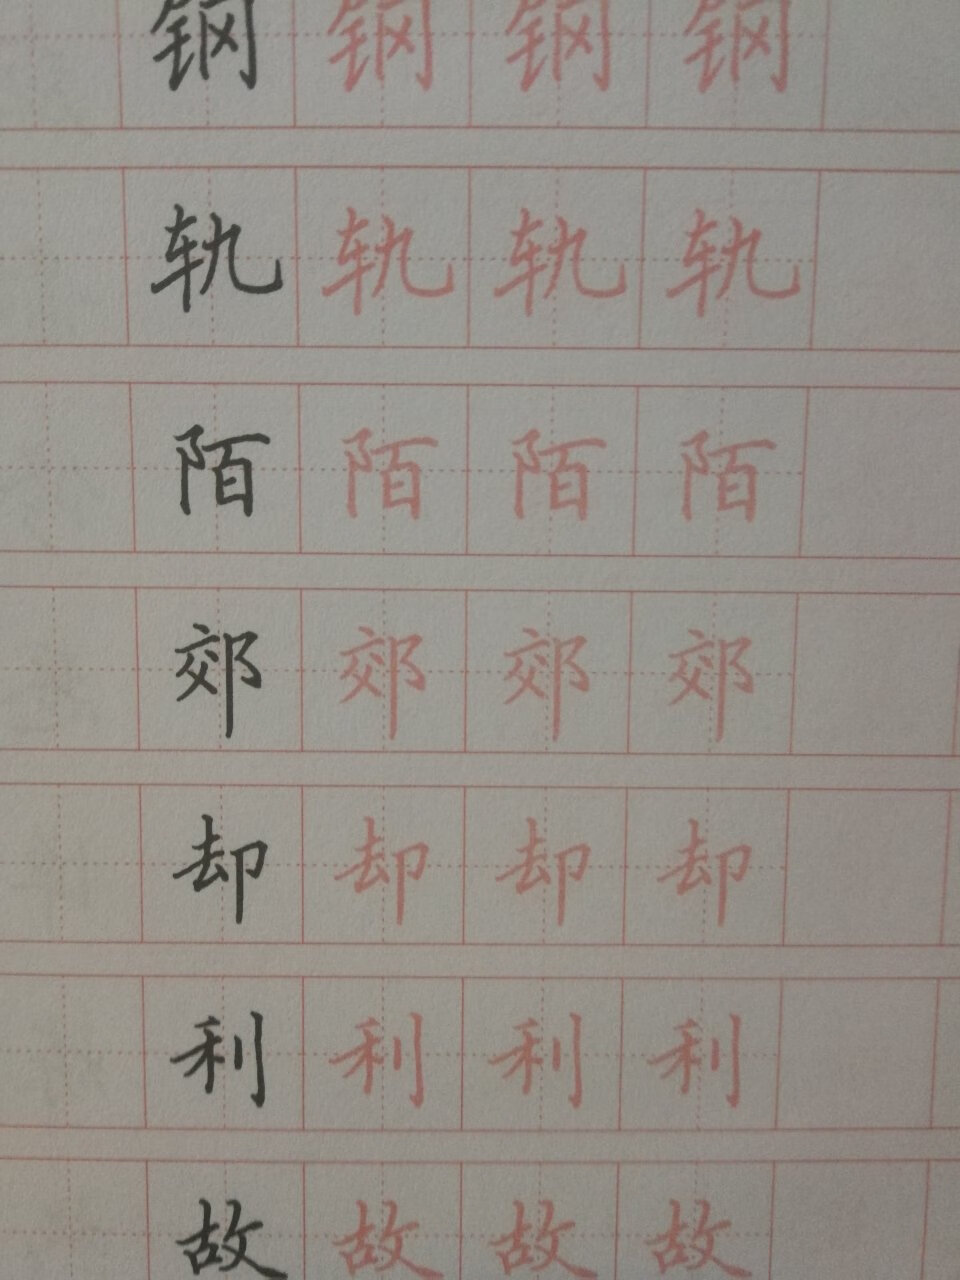 钢 钢 钢 钢
轨 轨 轨 轨
陌 陌 陌 陌
郊 郊 郊 郊
却 却 却 却
利 利 利 利
故 故 故 故